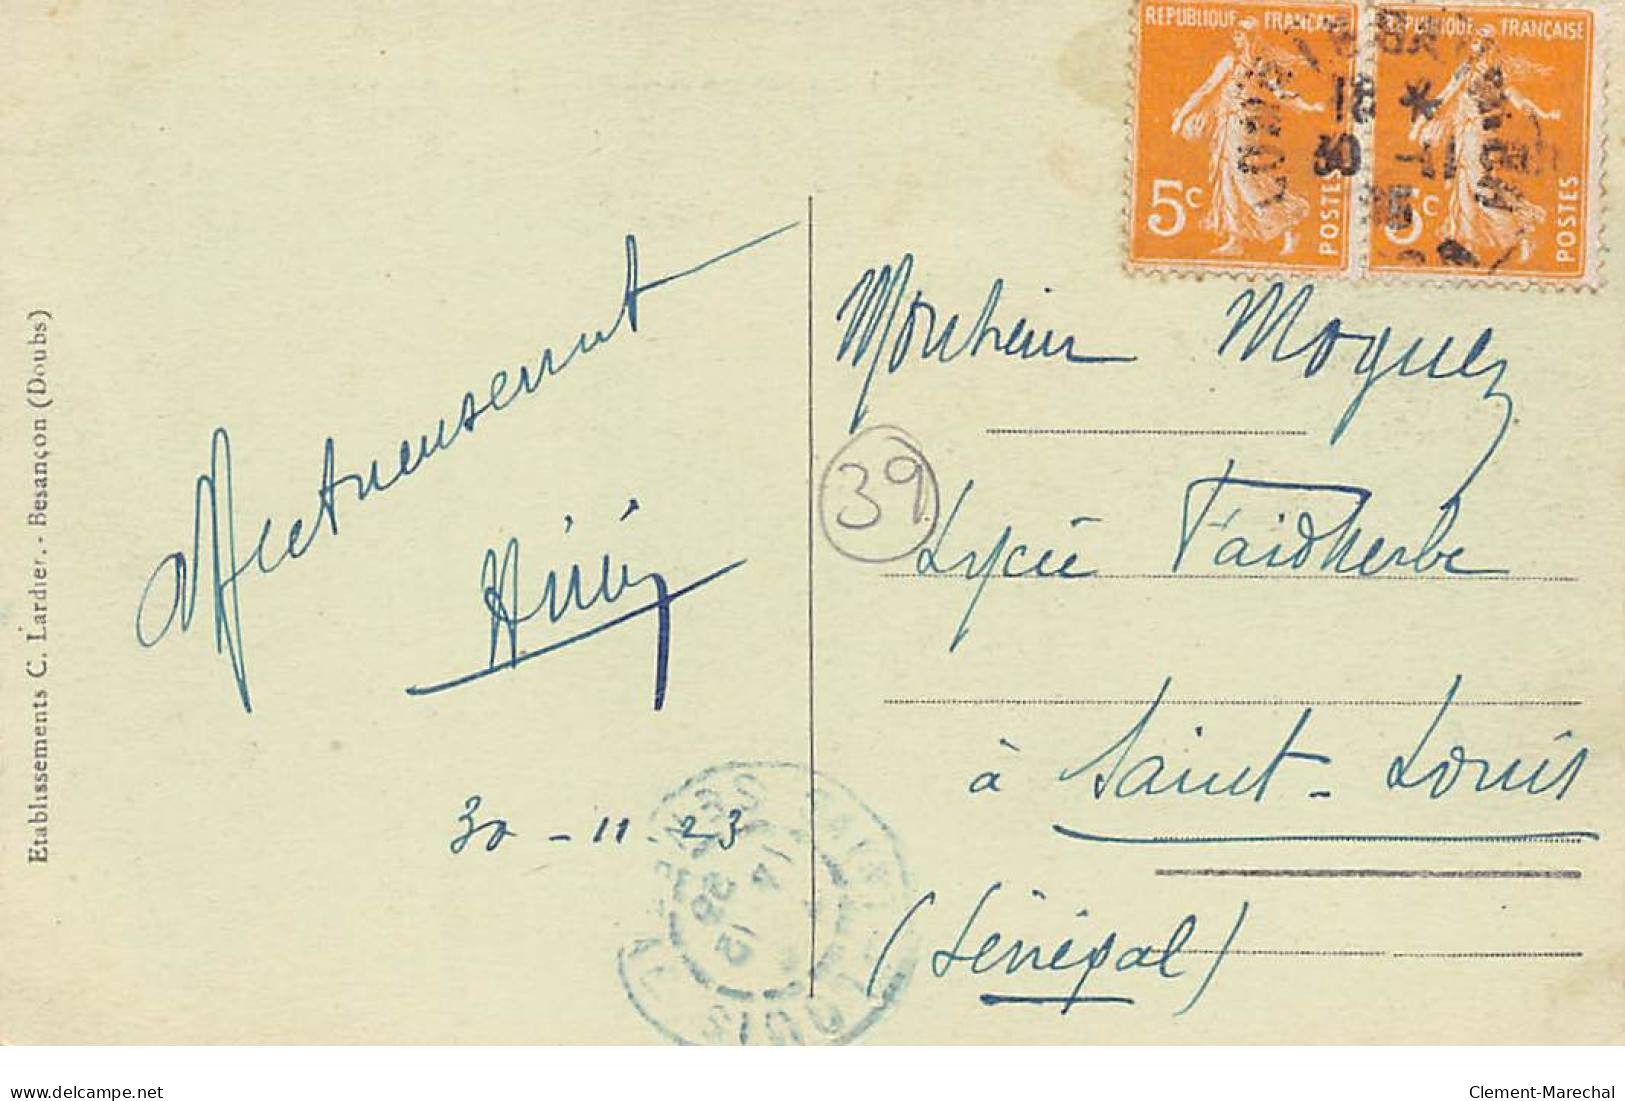 Etablissements C. Lardier. - Besançon (Doubs)
REPUBLIQUE FRANÇAISE
5c
POSTES
REPUBLIQUE FRANÇAISE
5c
POSTES
18 *
30 -11
Monsieur Moguez
39
Lycée Faidherbe
à Saint-Louis
(Sénégal)
Affectueusement
30 - 11 23
SAINT-LOUIS
delcampe.net
Clement-Marechal